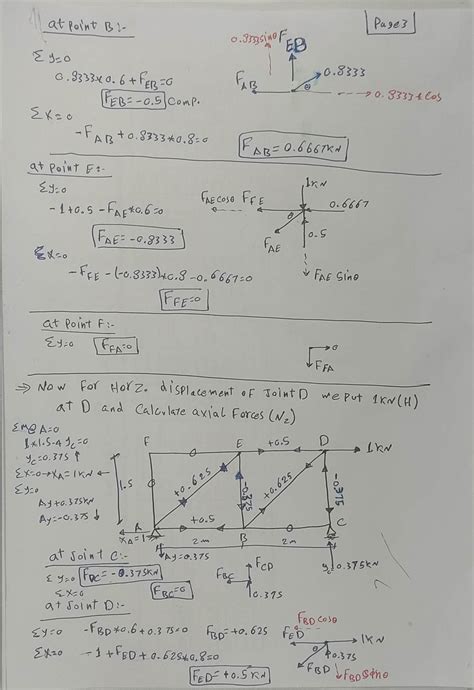 at point B:-
Page3
Σ y=0
0.8333*0.6+F_EB=0
F_EB=-0.5 Comp.
Σ x=0
-F_AB+0.8333*0.8=0
F_AB=0.6667KN
0.8333sinθ
F_EB
F_AB
0.8333
θ
0.8333*cos
at point E:-
Σy=0
-1+0.5-F_AE*0.6=0
F_AE=-0.8333
Σx=0
-F_FE-(-0.8333)*0.8-0.6667=0
F_FE=0
1KN
F_AE cosθ F_FE
0.6667
θ
F_AE
0.5
F_AE Sinθ
at point F:-
Σy=0 F_FA=0
0
F_FA
⇒ Now for Horz. displacement of Joint D we put 1KN(H)
at D and Calculate axial Forces (N2)
ΣM@A=0
1*1.5-4yc=0
yc=0.375 ↑
Σx=0→XA=1KN ←
Σy=0
Ay+0.375KN
Ay=-0.375 ↓
F
E
+0.5
D
1KN
1.5
0
+0.625
-0.375
+0.625
-0.375
A
+0.5
B
0
C
XA=1
2m
2m
Ay=0.375
yc 0.375KN
at Joint C:-
Σy=0 F_DC=-0.375KN
Σx=0 F_BC=0
F_BC
F_CD
0.375
at Joint D:-
Σy=0 -F_BD*0.6+0.375=0 F_BD=+0.625
Σx=0 -1+F_ED+0.625*0.8=0
F_ED=+0.5KN
F_BD cosθ
F_ED
1KN
0.375
F_BD
F_BD Sinθ